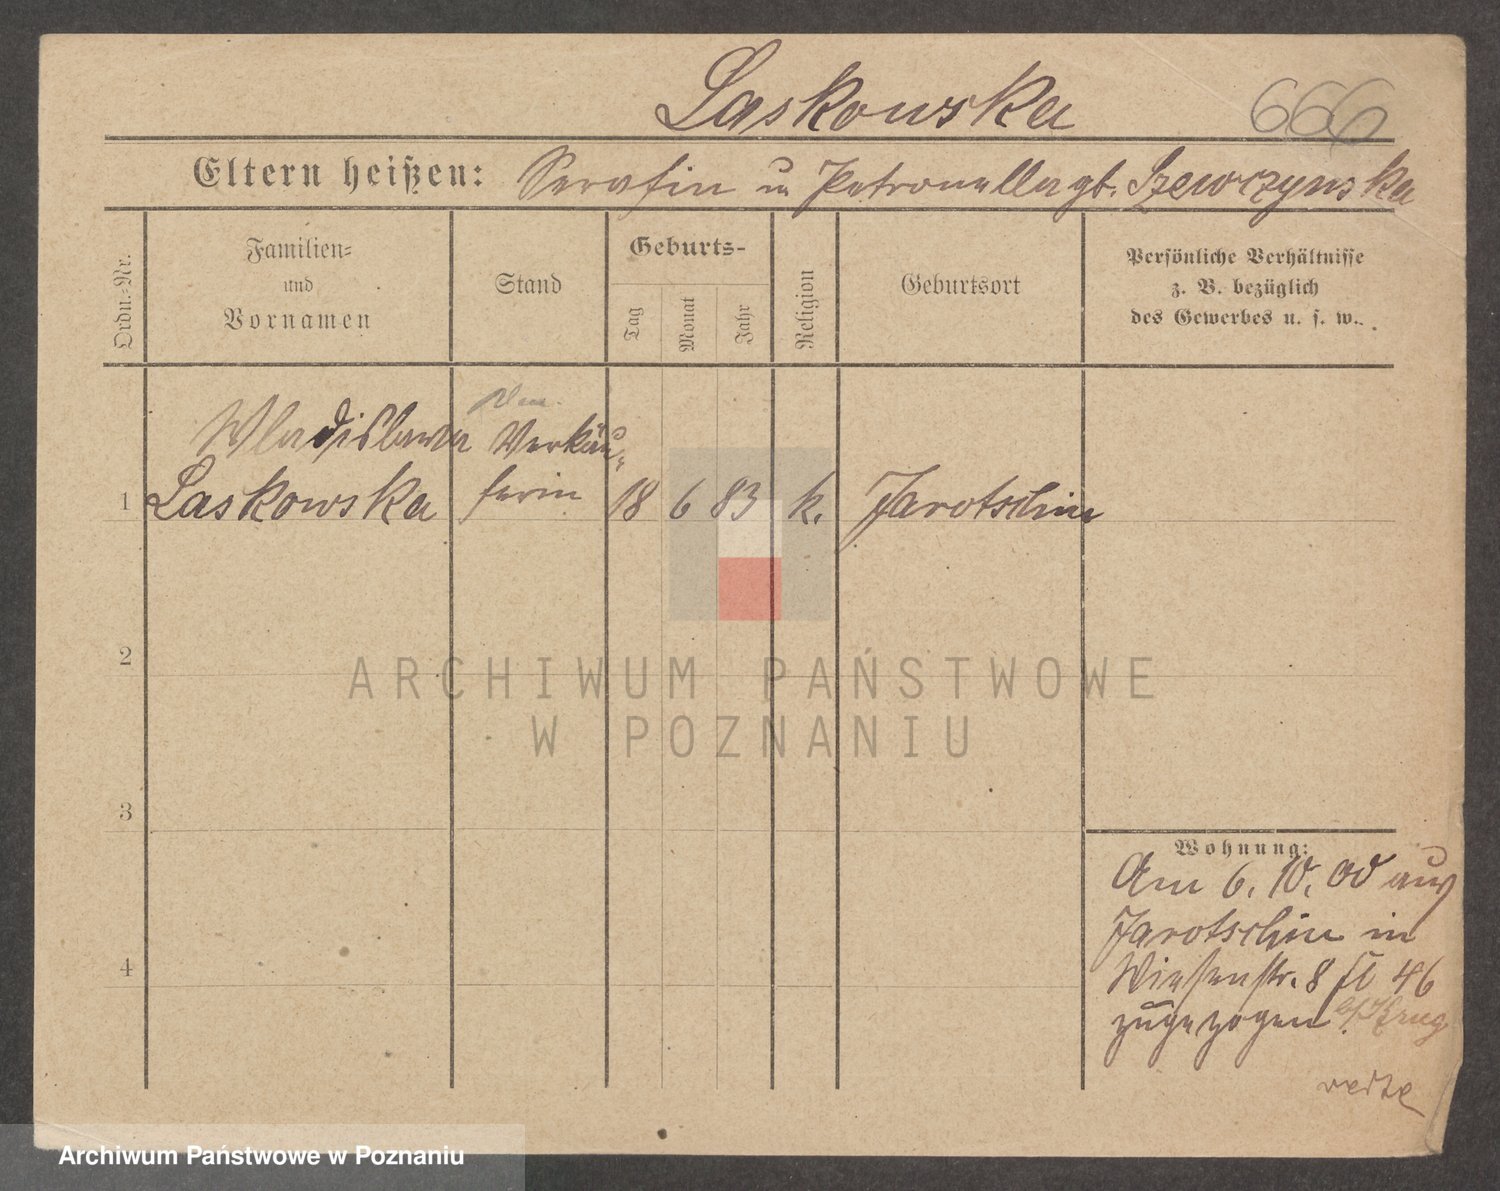 Laskowska
666
Eltern heißen: Serafin u Petronella gb. Szewczynska
Ordn.-Nr.
Familien-
und
Vornamen
Stand
Geburts-
Tag
Monat
Jahr
Religion
Geburtsort
Persönliche Verhältnisse
z. B. bezüglich
des Gewerbes u. s. w.
Wladislawa Verkäu-
1 Laskowska ferin 18 6 83 k. Jarotschin
2
3
4
Wohnung:
Am 6. 10. 00 aus
Jarotschin in
Wiesenstr. 8 46
zugezogen b/Krug
ARCHIWUM PAŃSTWOWE
W POZNANIU
Archiwum Państwowe w Poznaniu